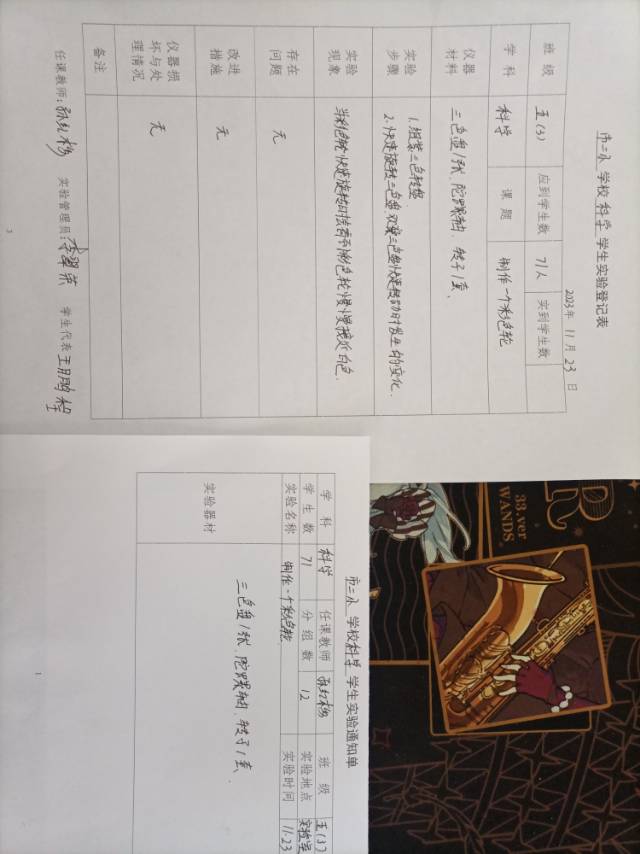 市二小 学校 科学 学生实验登记表
2023年 11月 23日
班级 五(3) 应到学生数 71人 实到学生数
学科 科学 课题 制作一个彩色轮
仪器材料 三色盘1张、陀螺轴、转子1套、
实验步骤 1.组装三色转盘
2.快速旋转三色盘,观察三色盘快速转动时发生的变化.
实验现象 当彩色轮快速旋转时,看到的色轮慢慢接近白色.
存在问题 无
改进措施 无
仪器损坏与处理情况 无
备注
任课教师: 实验管理员: 学生代表
3
市二小 学校科学 学生实验通知单
学科 科学 任课教师 班级 五(3)
学生数 71 分组数 12 实验地点 实验室
实验名称 制作一个彩色轮 实验时间 11.23
实验器材 三色盘1张、陀螺轴、转子1套、
1
R
33.ver
WANDS